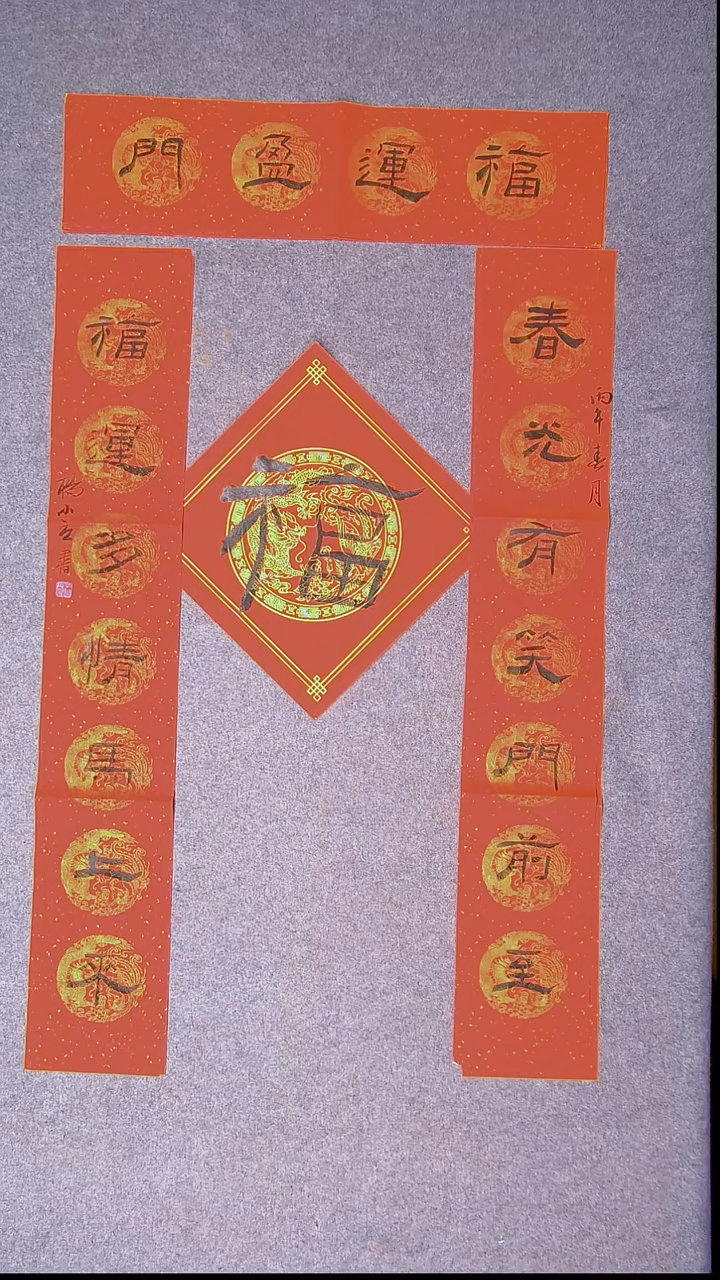 福運盈門
春光有笑門前至
丙午春月
福運多情馬上來
小立書
福